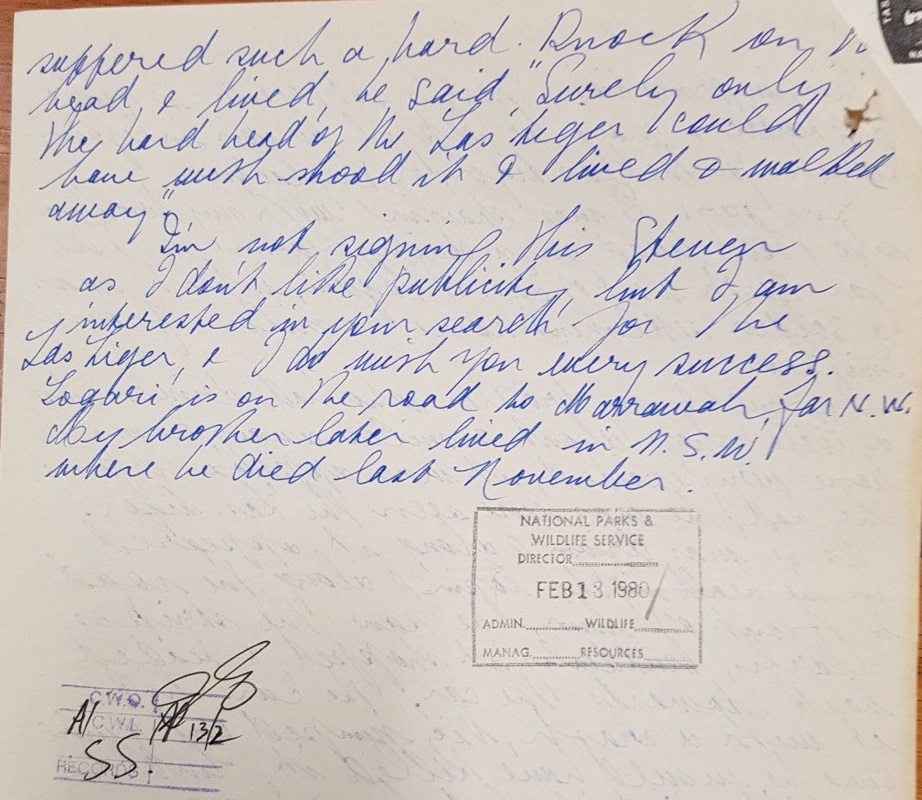 suffered such a hard. Knock on
head, & lived, he said "Surely only
the hard head of the Tas tiger could
have with stood it & lived & walked
away".
I'm not signing this Steven
as I don't like publicity, but I am
interested in your search for the
Tas tiger, & I do wish you every success.
Togari is on the road to Marrawah, far N.W.
My brother later lived in N.S.W.
where he died last November.
NATIONAL PARKS &
WILDLIFE SERVICE
DIRECTOR
FEB 13 1980
ADMIN. WILDLIFE
MANAG. RESOURCES
C.W.O.
A/ C.W.L. 13/2
SS.
RECORDS